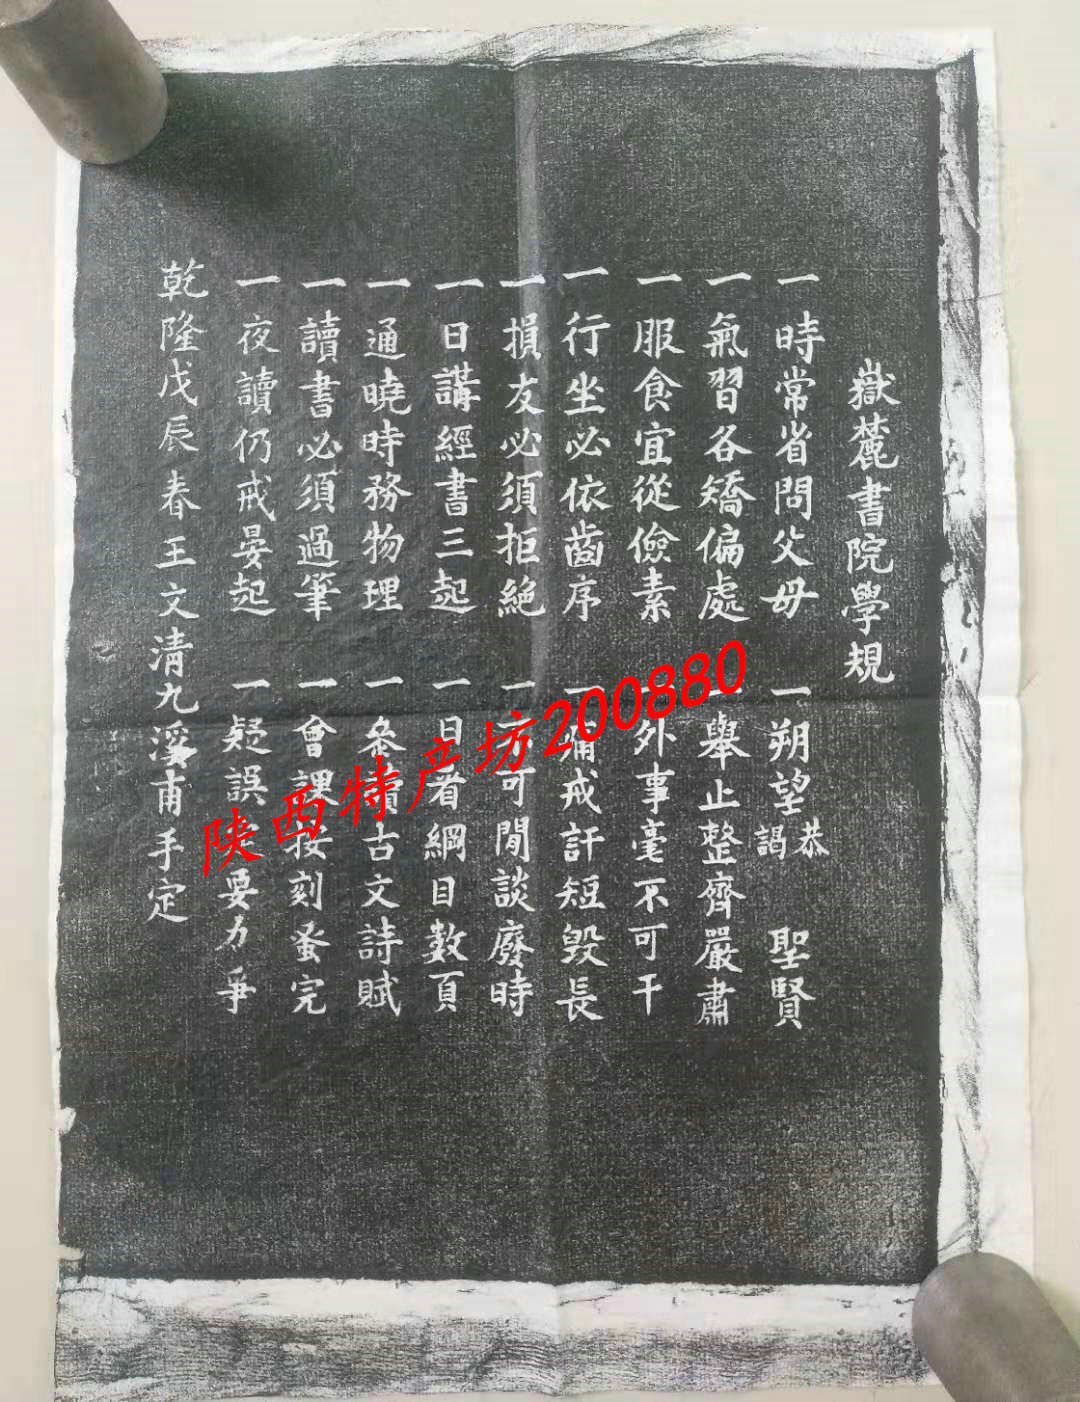 嶽麓書院學規
一時常省問父母 一朔望恭謁聖賢
一氣習各矯偏處 一舉止整齊嚴肅
一服食宜從儉素 一外事毫不可干
一行坐必依齒序 一痛戒訐短毀長
一損友必須拒絶 一不可閒談廢時
一日講經書三起 一日看綱目數頁
一通曉時務物理 一參讀古文詩賦
一讀書必須過筆 一會課按刻蚤完
一夜讀仍戒晏起 一疑誤定要力爭
乾隆戊辰春王文清九溪甫手定
陕西特产坊200880